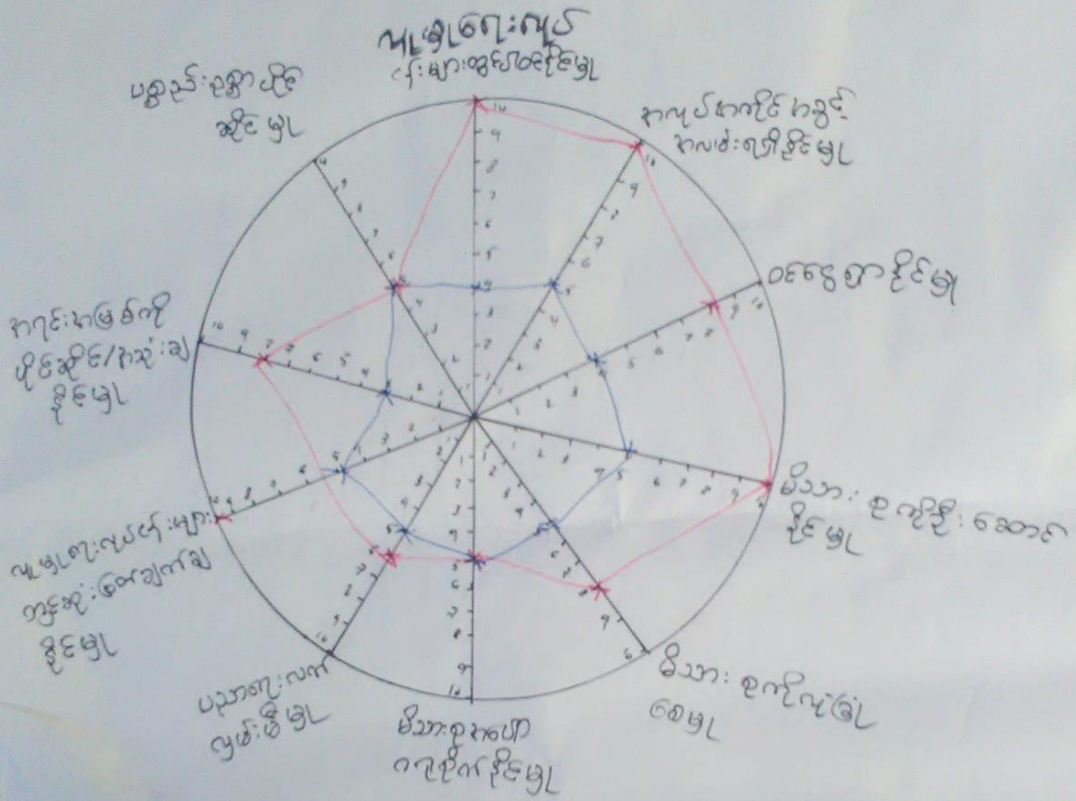 လူမှုရေးလုပ်
ငန်းများတွင်ပါဝင်နိုင်မှု
အလုပ်အကိုင်အခွင့်
အလမ်းရရှိနိုင်မှု
ဝင်ငွေရှာနိုင်မှု
မိသားစုကိုဦးဆောင်
နိုင်မှု
မိသားစုကိုလုံခြုံ
စေမှု
မိသားစုအပေါ်
ဂရုစိုက်နိုင်မှု
ပညာရေးလက်
လှမ်းမီမှု
လူမှုရေးလုပ်ငန်းများ
တွင်ဆုံးဖြတ်ချက်ချ
နိုင်မှု
အရင်းအမြစ်ကို
ပိုင်ဆိုင်/အသုံးချ
နိုင်မှု
ပစ္စည်းဥစ္စာပိုင်
ဆိုင်မှု